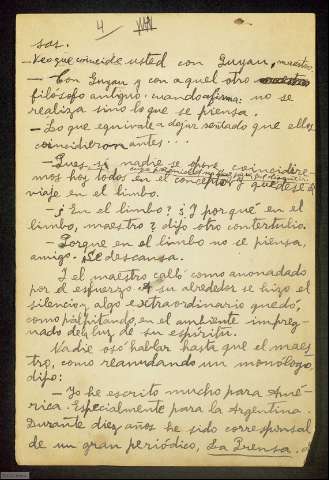 4
sos.
— Veo que coincide usted con Guyau, maestro.
— Con Guyau y con aquel otro
filósofo antiguo cuando afirma: no se
realiza sino lo que se piensa.
— Lo que equivale a dejar sentado que ellos
coincidieron antes...
— Pues si nadie se opone, coincidire-
mos hoy todos en el concepto y que dese de
viaje en el limbo.
— ¿En el limbo? ¿Y por qué en el
limbo, maestro? dijo otro contertulio.
— Porque en el limbo no se piensa,
amigo. Se descansa.
Y el maestro calló como anonadado
por el esfuerzo. A su alrededor se hizo el
silencio, y algo extraordinario quedó,
como palpitando, en el ambiente impreg-
nado de luz de su espíritu.
Nadie osó hablar hasta que el maes-
tro, como reanudando un monólogo,
dijo:
— Yo he escrito mucho para Amé-
rica. Especialmente para la Argentina.
Durante diez años he sido corresponsal
de un gran periódico, La Prensa.